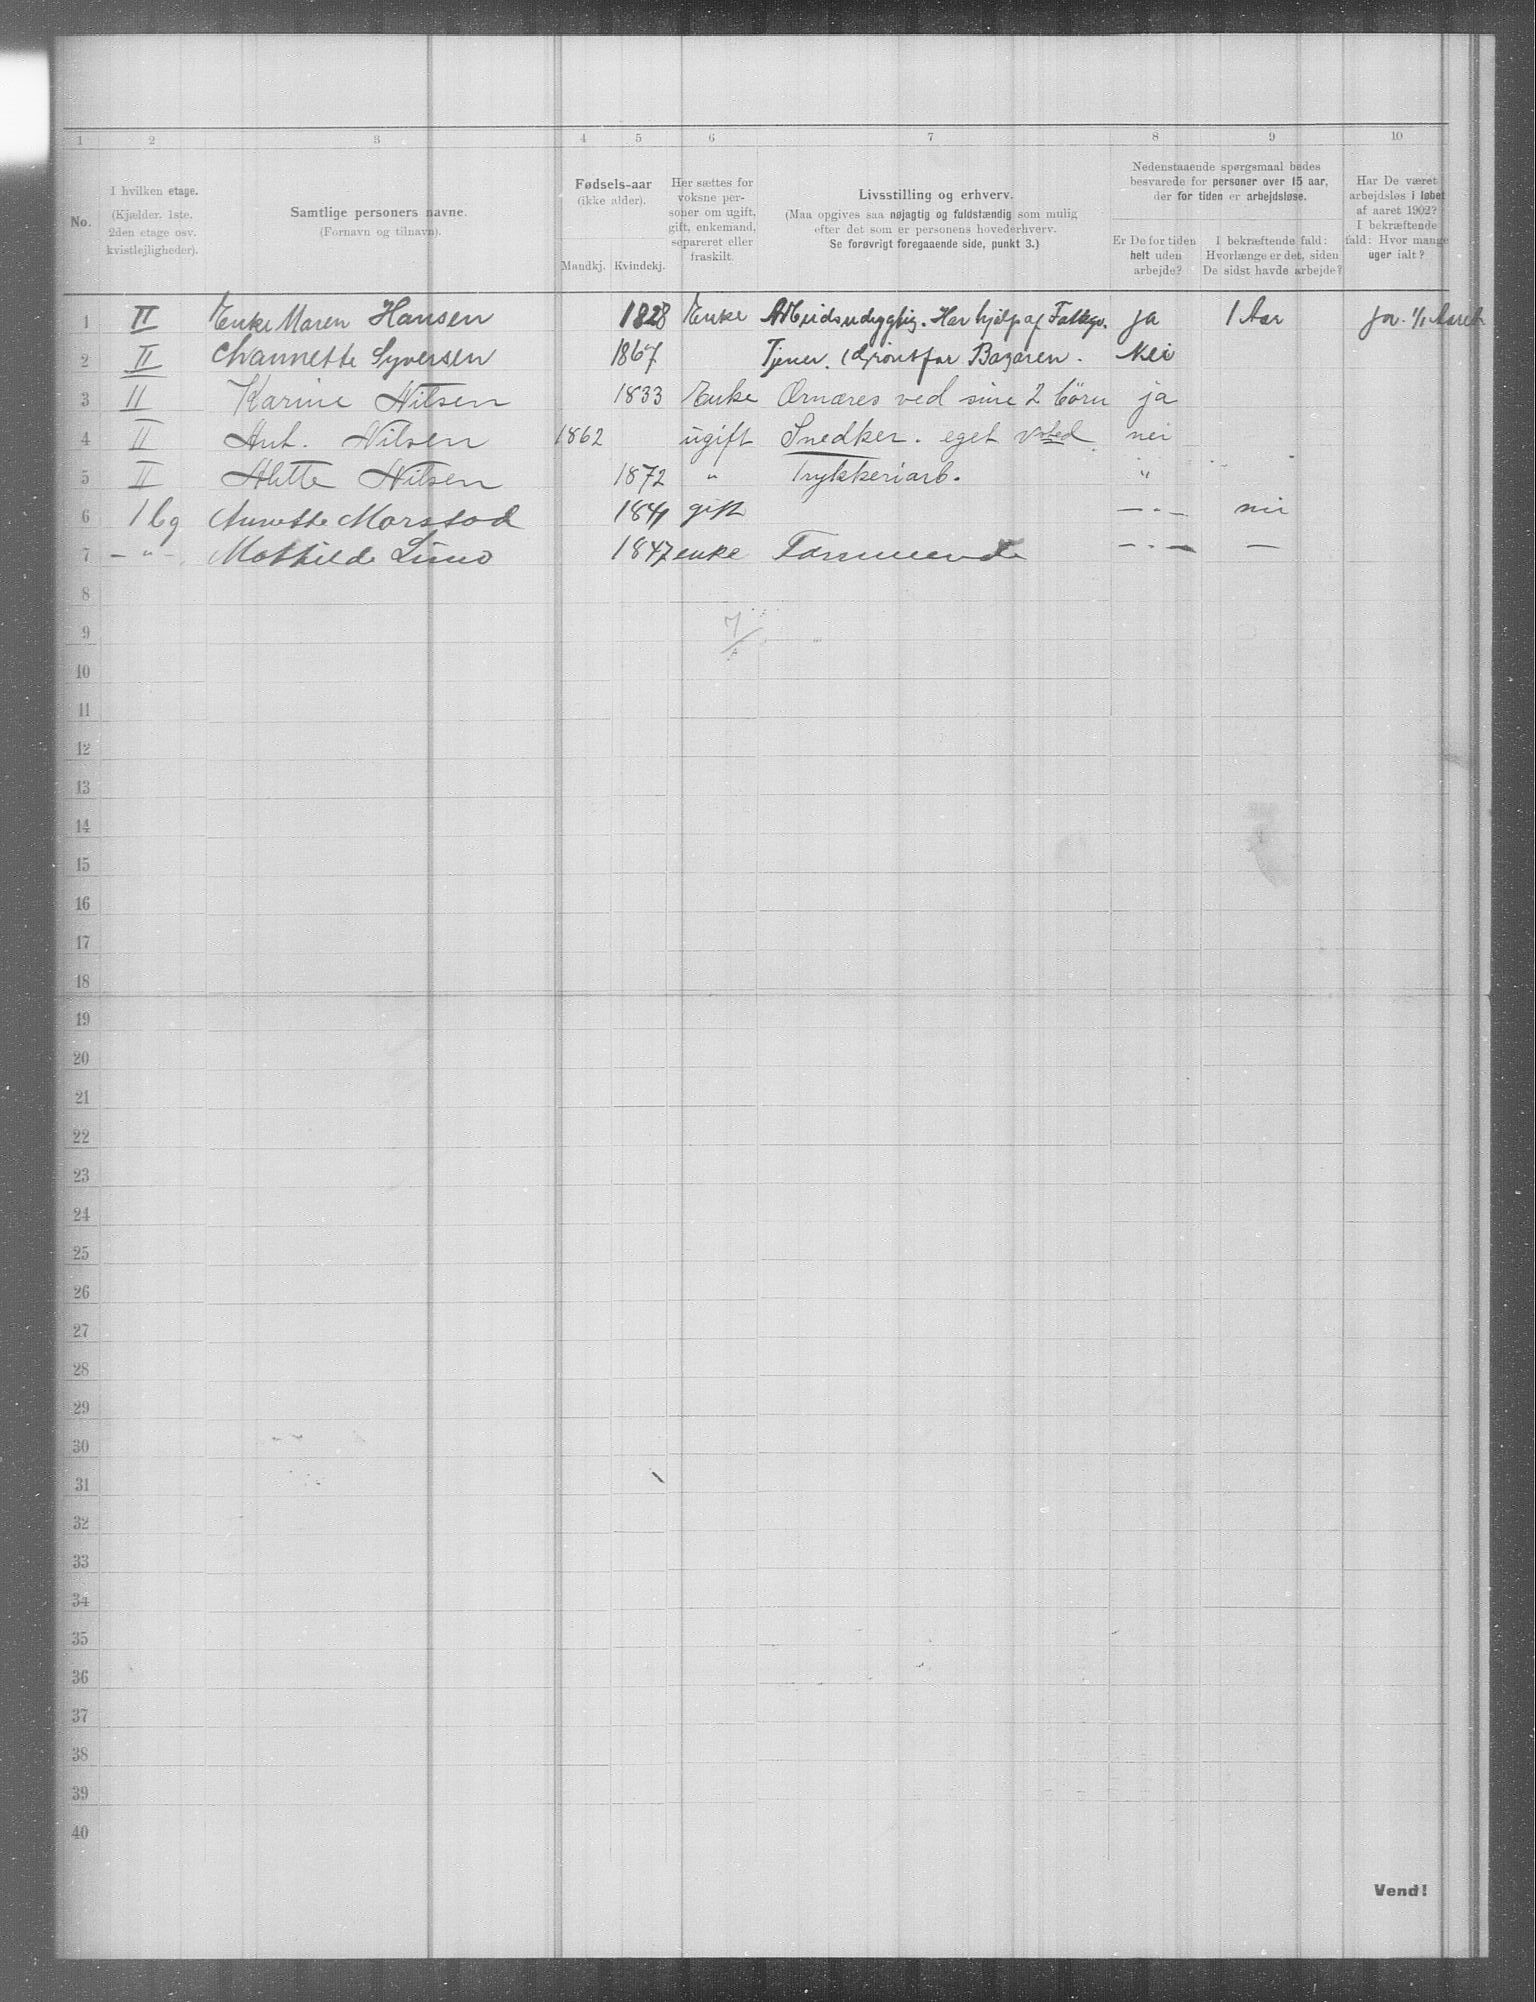 1 2 3 4 5 6 7 8 9 10
No.
I hvilken etage.
(Kjælder. 1ste.
2den etage osv.
kvistlejligheder).
Samtlige personers navne.
(Fornavn og tilnavn).
Fødsels-aar
(ikke alder).
Mandkj. Kvindekj.
Her sættes for
voksne per-
soner om ugift,
gift, enkemand,
separeret eller
fraskilt.
Livsstilling og erhverv.
(Maa opgives saa nøjagtig og fuldstændig som mulig
efter det som er personens hovederhverv.
Se forøvrigt foregaaende side, punkt 3.)
Nedenstaaende spørgsmaal bedes
besvarede for personer over 15 aar,
der for tiden er arbejdsløse.
Er De for tiden
helt uden
arbejde?
I bekræftende fald:
Hvorlænge er det, siden
De sidst havde arbejde?
Har De været
arbejdsløs i løbet
af aaret 1902?
I bekræftende
fald: Hvor mange
uger ialt?
1 II Enke Maren Hansen 1828 Enke Har hjelp af ja 1 Aar ja. 1/1 Aaret
2 II Syversen 1867 Tjener. Basaren. Nei
3 II Karine Nilsen 1833 Enke Ernæres ved sine 2 börn ja
4 II Ant. Nilsen 1862 ugift Snedker. eget nei
5 II Alette Nilsen 1872 " Trykkeriarb. "
6 1 bg Annette Morstad gift — " — nei
7 — " — Mathilde 1847 enke Formuende — " — —
8
9
10
11
12
13
14
15
16
17
18
19
20
21
22
23
24
25
26
27
28
29
30
31
32
33
34
35
36
37
38
39
40
Vend!